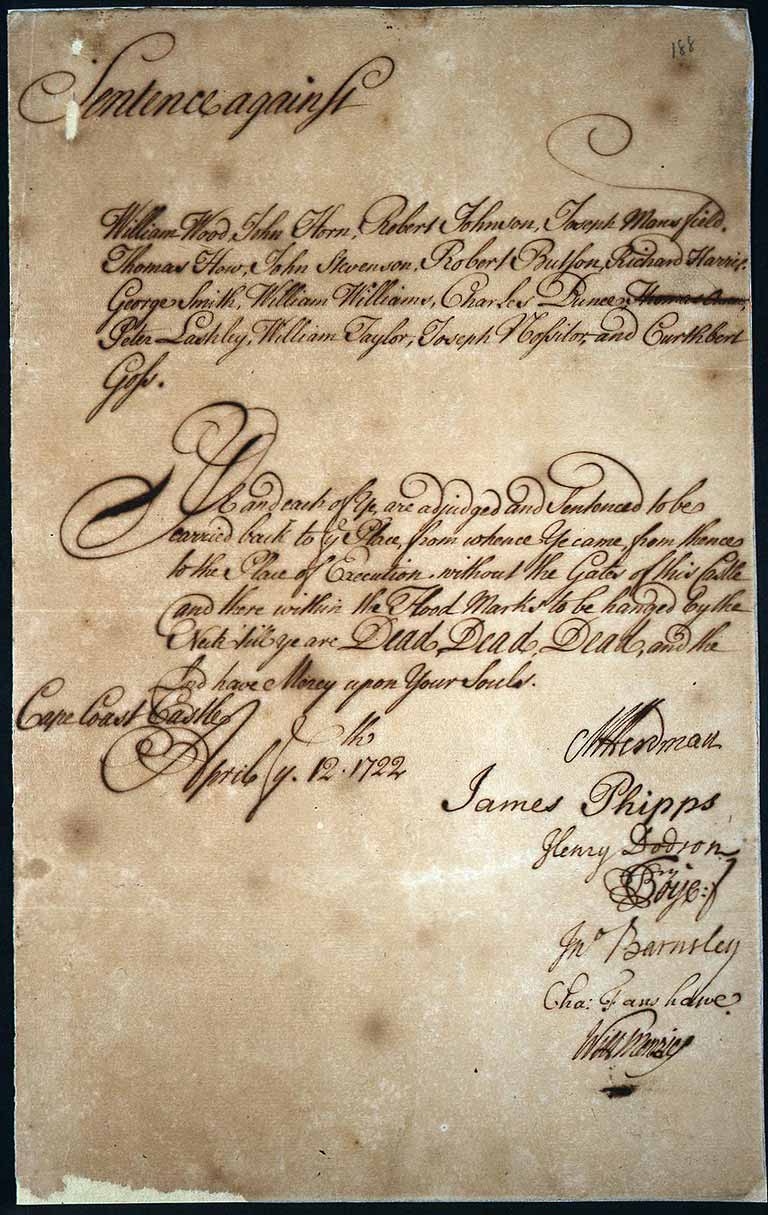 188
Sentence against
William Wood, John Horn, Robert Johnson, Joseph Mansfield.
Thomas How, John Stevenson, Robert Butson, Richard Harris.
George Smith, William Williams, Charles Bunce, Thomas
Peter Lashley, William Taylor, Joseph Nossitor, and Curthbert
Goss.
Ye and each of Ye, are adjudged and Sentenced to be
carried back to ye Place, from whence Ye came from thence
to the Place of Execution without the Gates of this Castle
and there within the Flood Marks to be hanged by the
Neck 'till ye are Dead, Dead, Dead, and the
Lord have Mercy upon Your Souls.
Cape Coast Castle
April ye. 12th. 1722
M Herdman
James Phipps
Henry Dodson
Boye:
Jno Barnsley
Cha: Fanshawe
Will Menzies